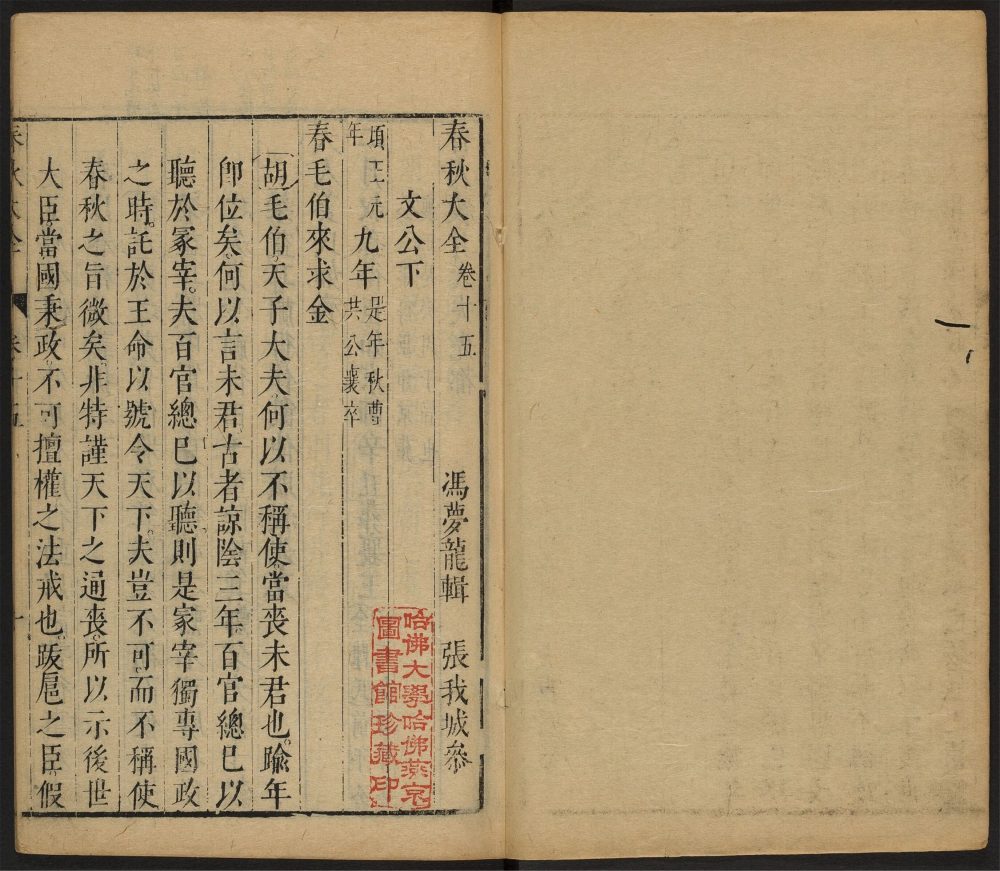 春秋大全 卷十五 馮夢龍輯 張我城叅
文公下
頃王元年 九年 是年秋曹共公襄卒
春毛伯來求金
胡毛伯天子大夫何以不稱使當喪未君也踰年
卽位矣何以言未君古者諒陰三年百官總已以
聽於冢宰夫百官總已以聽則是冢宰獨專國政
之時託於王命以號令天下夫豈不可而不稱使
春秋之旨微矣非特謹天下之通喪所以示後世
大臣當國秉政不可擅權之法戒也跋扈之臣假
春秋大全 卷十五 一
哈佛大學哈佛燕京
圖書館珍藏印